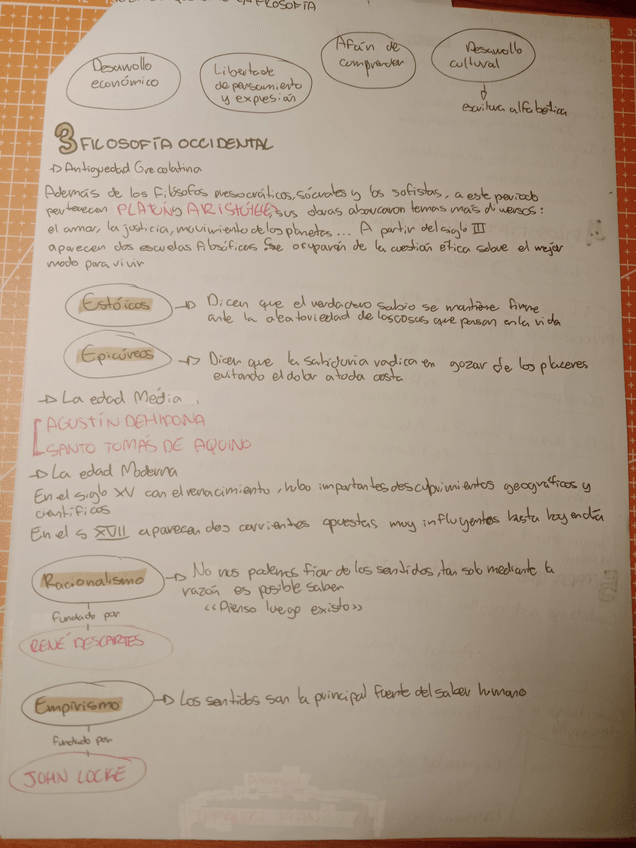 FILOSOFÍA
Desarrollo
económico
Libertad de
de pensamiento
y expresión
Afán de
comprender
Desarrollo
cultural
escritura alfabética
3 FILOSOFÍA OCCIDENTAL
→ Antiguedad Grecolatina
Además de los filósofos presocráticos, sócrates y los sofistas, a este periodo
pertenecen PLATÓN y ARISTÓTELES, sus obras abarcaron temas más diversos:
el amor, la justicia, movimiento de los planetas... A partir del siglo III
aparecen dos escuelas filosóficas se ocuparán de la cuestión ética sobre el mejor
modo para vivir
Estóicos → Dicen que el verdadero sabio se mantiene firme
ante la aleatoriedad de las cosas que pasan en la vida
Epicúreos → Dicen que la sabiduria radica en gozar de los placeres
evitando el dolor a toda costa
→ La edad Média
AGUSTÍN DE HIPONA
SANTO TOMÁS DE AQUINO
→ La edad Moderna
En el siglo XV con el renacimiento, hubo importantes descubrimientos geográficos y
científicos
En el s XVII aparecen dos corrientes opuestas muy influyentes hasta hoy en día
Racionalismo → No nos podemos fiar de los sentidos, tan solo mediante la
razón es posible saber
<<Pienso luego existo>>
fundado por
RENÉ DESCARTES
Empirismo → Los sentidos son la principal fuente del saber humano
fundado por
JOHN LOCKE